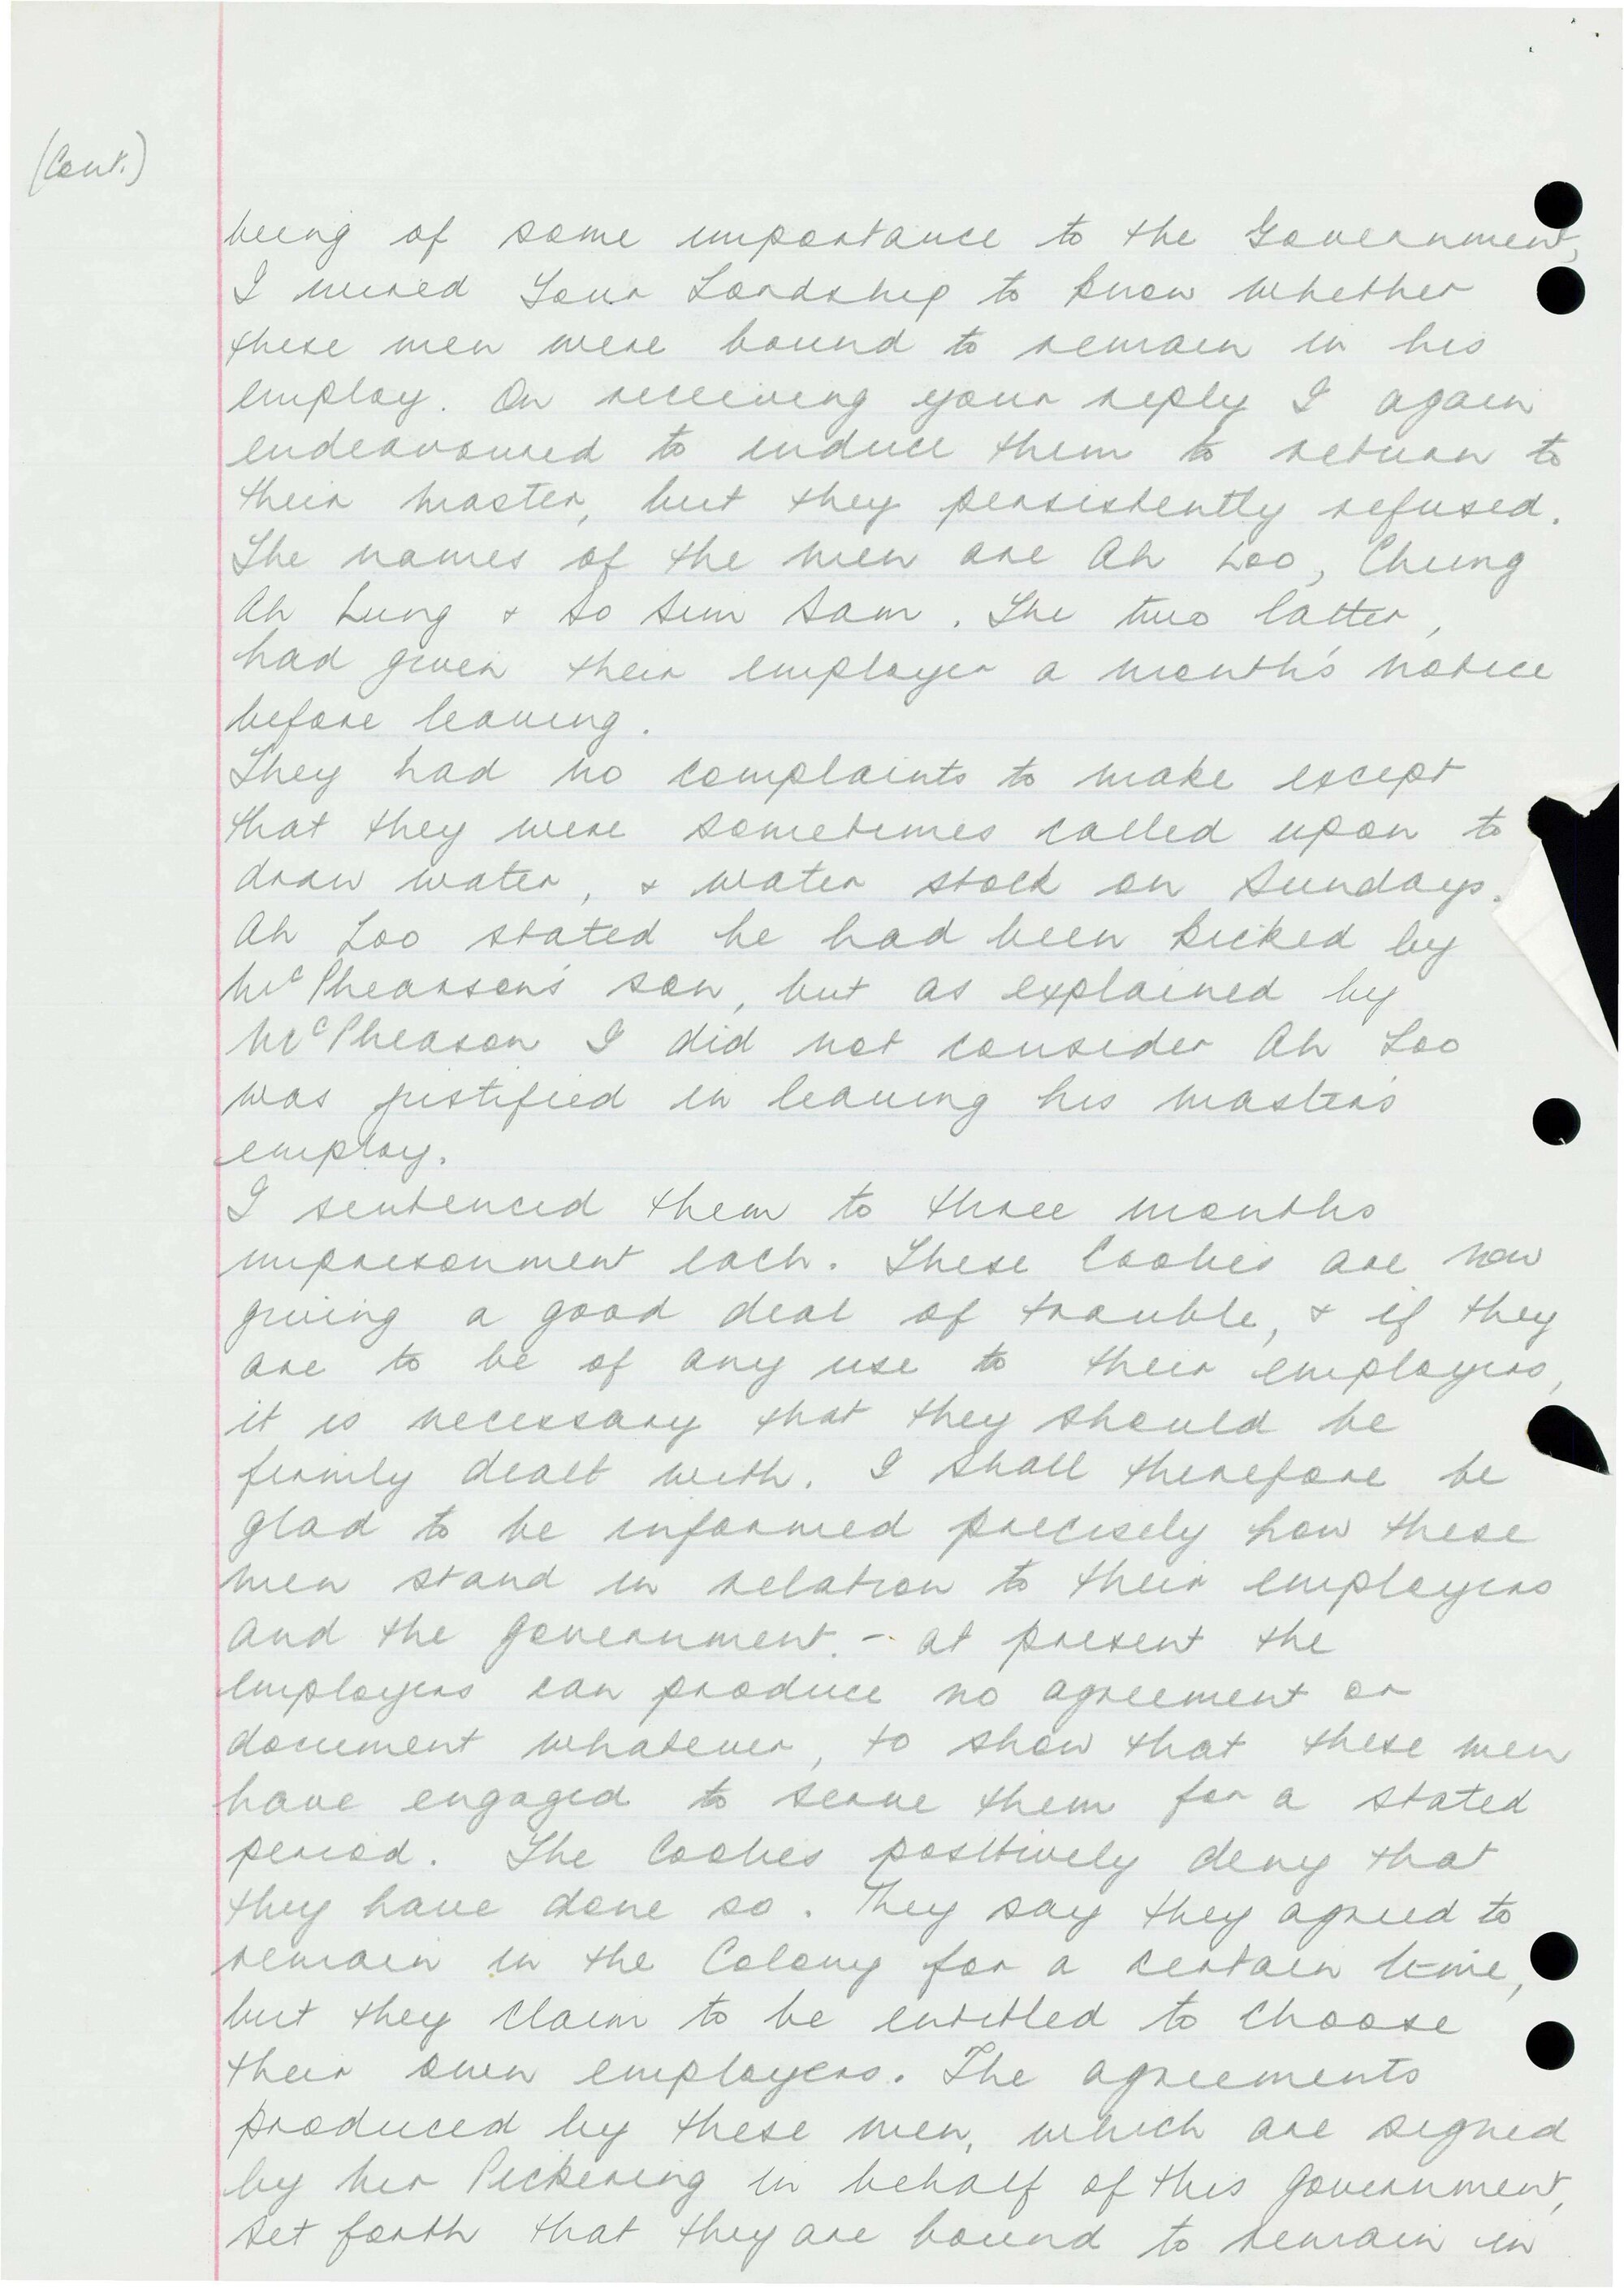 (Cont.)
being of some importance to the Government,
I wired Your Lordship to know whether
these men were bound to remain in his
employ. On receiving your reply I again
endeavoured to induce them to return to
their master, but they persistently refused.
The names of the men are Ah Loo, Cheung
Ah Lung & So Sim Sam. The two latter,
had given their employer a month's notice
before leaving.
They had no complaints to make except
that they were sometimes called upon to
draw water, & water stock on Sundays.
Ah Loo stated he had been kicked by
McPhearson's son, but as explained by
McPheason I did not consider Ah Loo
was justified in leaving his master's
employ.
I sentenced them to three months
imprisonment each. These Coolies are now
giving a good deal of trouble, & if they
are to be of any use to their employers,
it is necessary that they should be
firmly dealt with. I shall therefore be
glad to be informed precisely how these
men stand in relation to their employers
and the Government. - at present the
employers can produce no agreement or
document whatever, to show that these men
have engaged to serve them for a stated
period. The Coolies positively deny that
they have done so. They say they agreed to
remain in the Colony for a certain time,
but they claim to be entitled to choose
their own employers. The agreements
produced by these men, which are signed
by Mr Pickering in behalf of this Government,
set forth that they are bound to remain in